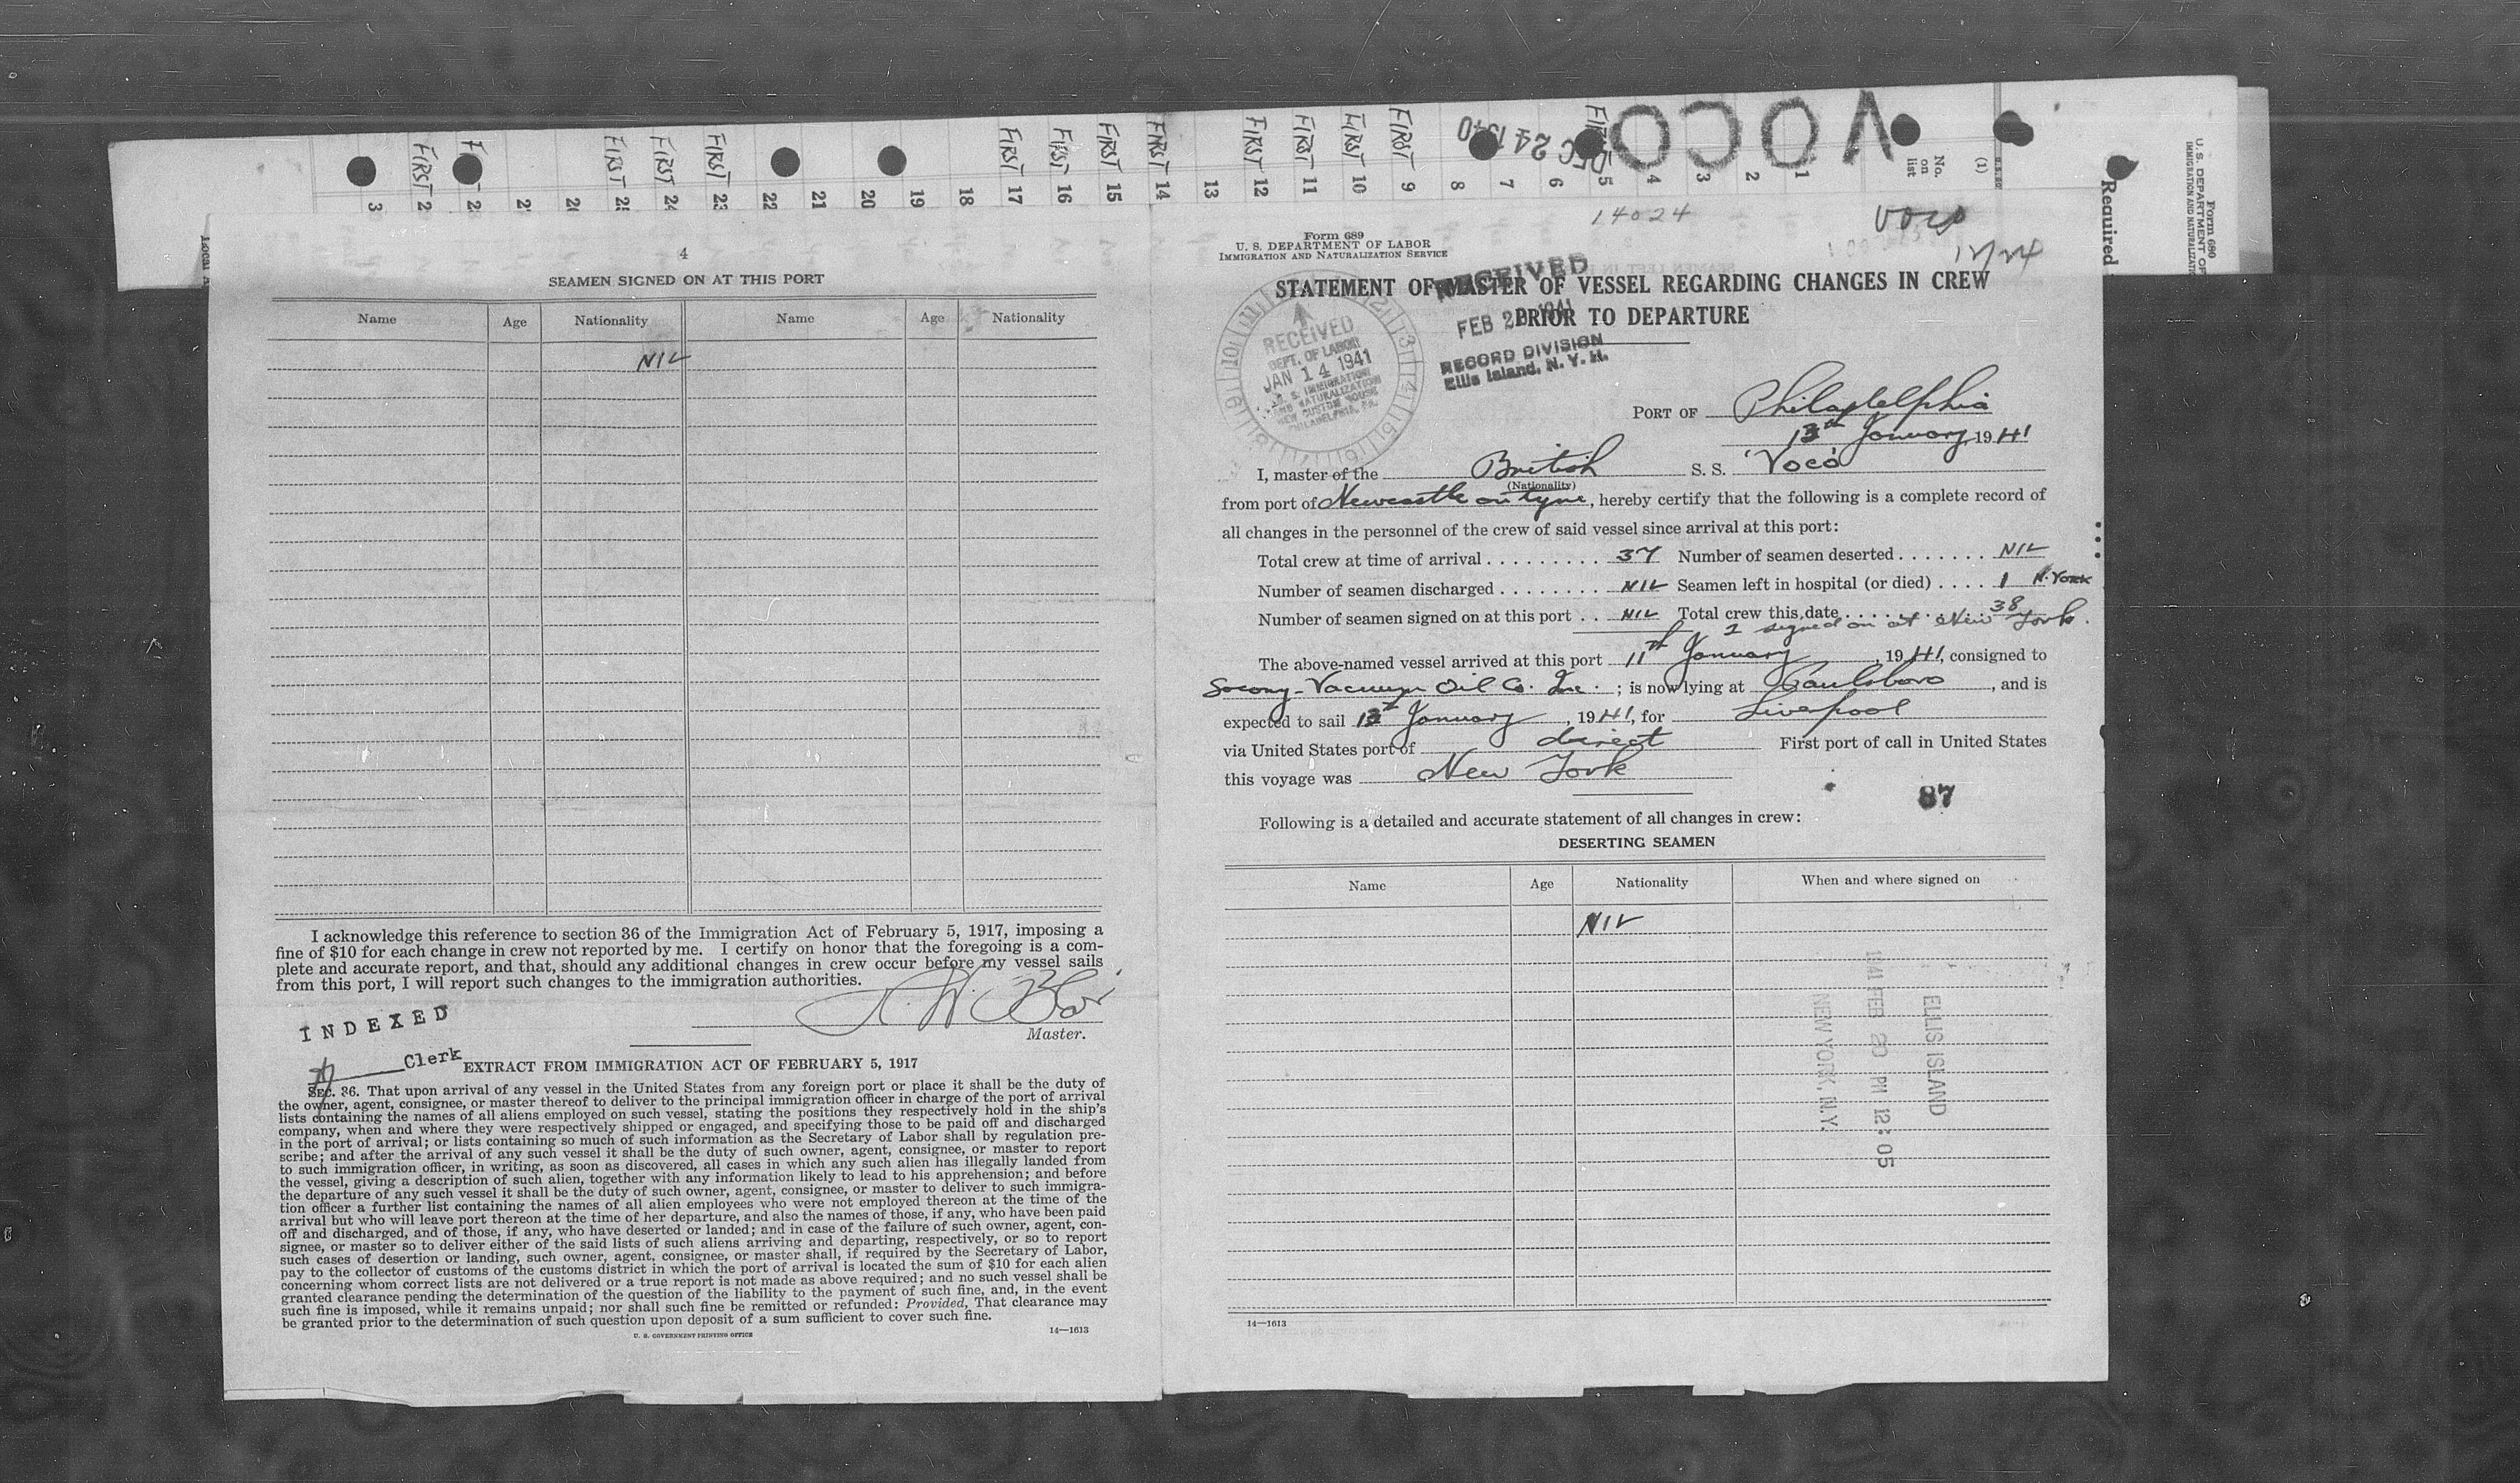 FIRST
FIRST
FIRST
FIRST
FIRST
FIRST
FIRST
FIRST
FIRST
FIRST
FIRST
FIRST
DEC 24 1940
VOCO
No. on list
(1)
3 2 2 22 21 20 19 18 17 16 15 14 13 12 11 10 9 8 7 6 5 4 3 2 1
Required
Form 680
U. S. DEPARTMENT OF
IMMIGRATION AND NATURALIZ
14024
Voco
12/24
4
SEAMEN SIGNED ON AT THIS PORT
Name Age Nationality Name Age Nationality
NIL
I acknowledge this reference to section 36 of the Immigration Act of February 5, 1917, imposing a
fine of $10 for each change in crew not reported by me. I certify on honor that the foregoing is a com-
plete and accurate report, and that, should any additional changes in crew occur before my vessel sails
from this port, I will report such changes to the immigration authorities.
Master.
INDEXED
Clerk
EXTRACT FROM IMMIGRATION ACT OF FEBRUARY 5, 1917
SEC. 36. That upon arrival of any vessel in the United States from any foreign port or place it shall be the duty of
the owner, agent, consignee, or master thereof to deliver to the principal immigration officer in charge of the port of arrival
lists containing the names of all aliens employed on such vessel, stating the positions they respectively hold in the ship's
company, when and where they were respectively shipped or engaged, and specifying those to be paid off and discharged
in the port of arrival; or lists containing so much of such information as the Secretary of Labor shall by regulation pre-
scribe; and after the arrival of any such vessel it shall be the duty of such owner, agent, consignee, or master to report
to such immigration officer, in writing, as soon as discovered, all cases in which any such alien has illegally landed from
the vessel, giving a description of such alien, together with any information likely to lead to his apprehension; and before
the departure of any such vessel it shall be the duty of such owner, agent, consignee, or master to deliver to such immigra-
tion officer a further list containing the names of all alien employees who were not employed thereon at the time of the
arrival but who will leave port thereon at the time of her departure, and also the names of those, if any, who have been paid
off and discharged, and of those, if any, who have deserted or landed; and in case of the failure of such owner, agent, con-
signee, or master so to deliver either of the said lists of such aliens arriving and departing, respectively, or so to report
such cases of desertion or landing, such owner, agent, consignee, or master shall, if required by the Secretary of Labor,
pay to the collector of customs of the customs district in which the port of arrival is located the sum of $10 for each alien
concerning whom correct lists are not delivered or a true report is not made as above required; and no such vessel shall be
granted clearance pending the determination of the question of the liability to the payment of such fine, and, in the event
such fine is imposed, while it remains unpaid; nor shall such fine be remitted or refunded: Provided, That clearance may
be granted prior to the determination of such question upon deposit of a sum sufficient to cover such fine.
U. S. GOVERNMENT PRINTING OFFICE 14—1613
Form 689
U. S. DEPARTMENT OF LABOR
IMMIGRATION AND NATURALIZATION SERVICE
STATEMENT OF MASTER OF VESSEL REGARDING CHANGES IN CREW
PRIOR TO DEPARTURE
RECEIVED
DEPT. OF LABOR
JAN 14 1941
U. S. IMMIGRATION
AND NATURALIZATION
NEW CUSTOM HOUSE
PHILADELPHIA, PA.
RECEIVED
FEB 20 1941
RECORD DIVISION
Ellis Island, N. Y. H.
PORT OF Philadelphia
13th January, 1941
I, master of the British S. S. "Voco"
(Nationality)
from port of Newcastle on tyne, hereby certify that the following is a complete record of
all changes in the personnel of the crew of said vessel since arrival at this port:
Total crew at time of arrival . . . . . . . . . 37 Number of seamen deserted . . . . . . . NIL
Number of seamen discharged . . . . . . . . NIL Seamen left in hospital (or died) . . . . 1 N. York
Number of seamen signed on at this port . . NIL Total crew this date . . . . . . . . . 38
2 signed on at New York.
The above-named vessel arrived at this port 11th January, 1941, consigned to
Socony-Vacuum Oil Co. Inc. ; is now lying at Paulsboro, and is
expected to sail 13th January, 1941, for Liverpool
via United States port of direct First port of call in United States
this voyage was New York
87
Following is a detailed and accurate statement of all changes in crew:
DESERTING SEAMEN
Name Age Nationality When and where signed on
NIL
ELLIS ISLAND
1941 FEB 20 PM 12:05
NEW YORK, N.Y.
14—1613